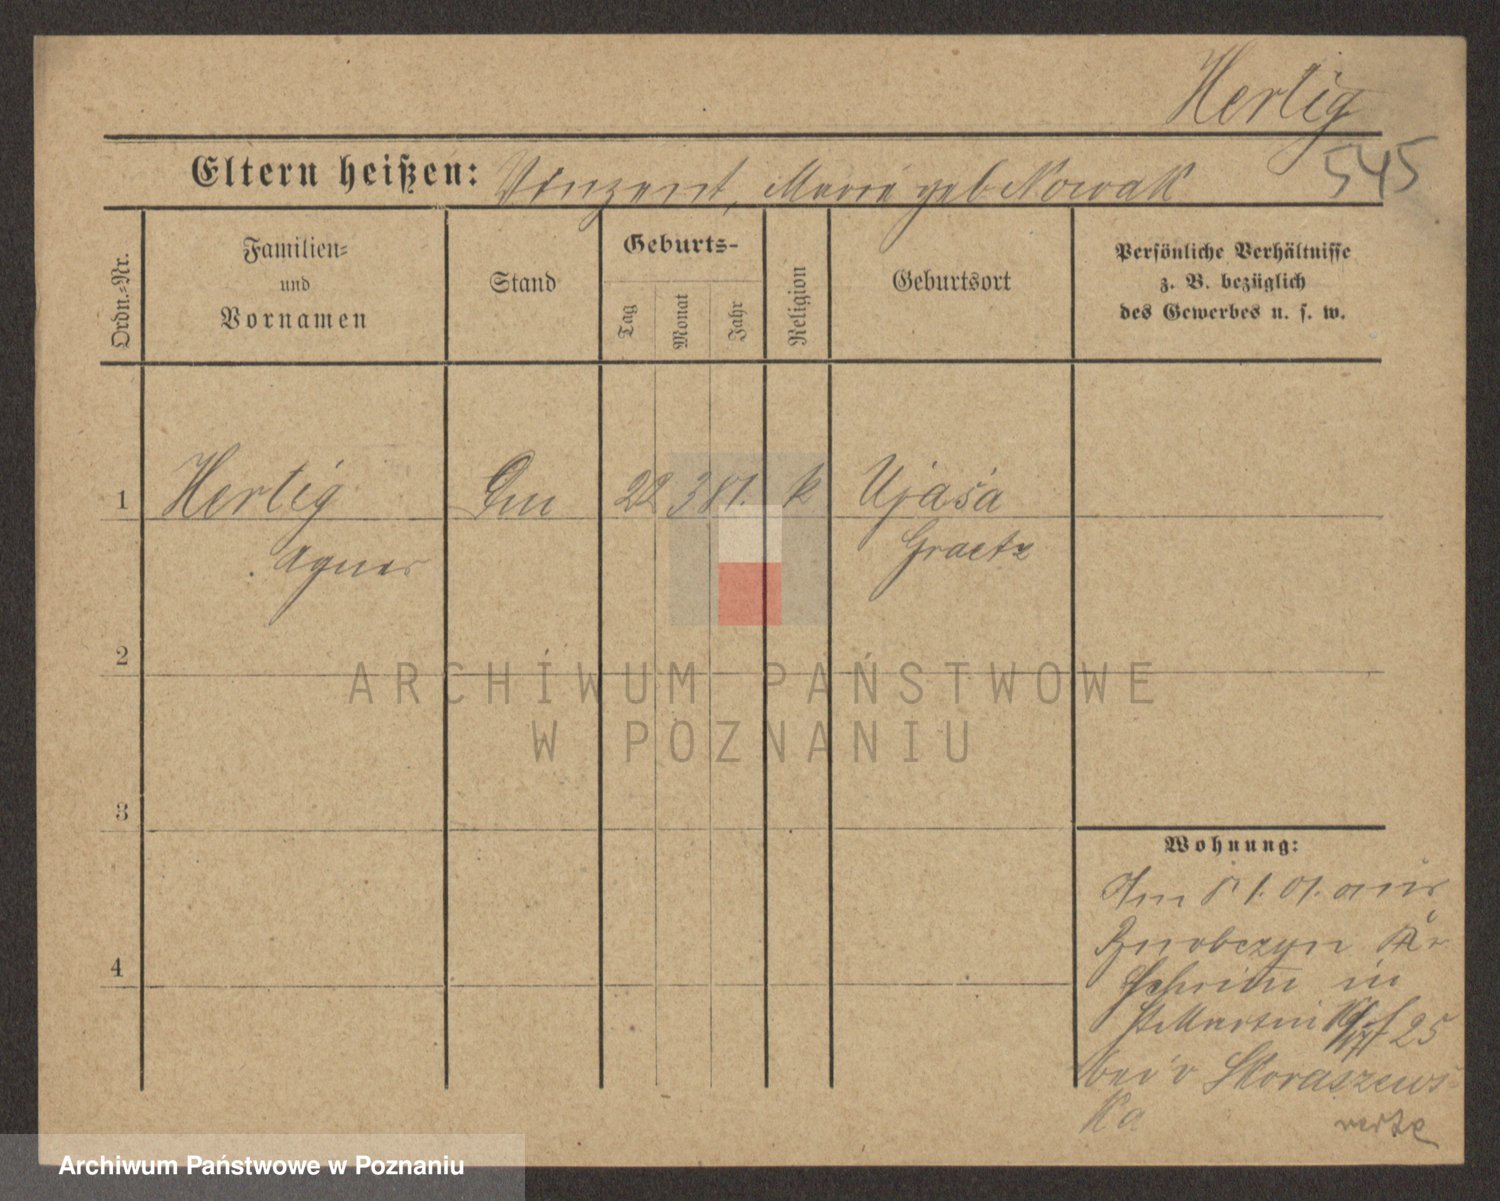 Hertig
545
Eltern heißen: Vinzent, Marie geb Nowak
Ordn.-Nr.
Familien-
und
Vornamen
Stand
Geburts-
Tag
Monat
Jahr
Religion
Geburtsort
Persönliche Verhältnisse
z. B. bezüglich
des Gewerbes u. s. w.
1 Hertig 22 3 81. k Ujaśa
Agnes Graetz
2
3
4
Wohnung:
in
St Martin 25
bei v Skoraszews
ka
ARCHIWUM PAŃSTWOWE
W POZNANIU
Archiwum Państwowe w Poznaniu